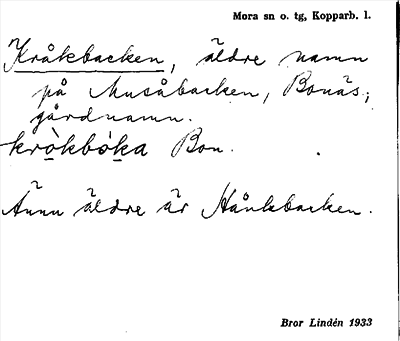 Mora sn o. tg, Kopparb. l.
Kråkbacken, äldre namn
på Musåbacken, Bonäs;
gårdnamn.
kròkbòka Bon.
Ännu äldre är Hånkbacken.
Bror Lindén 1933